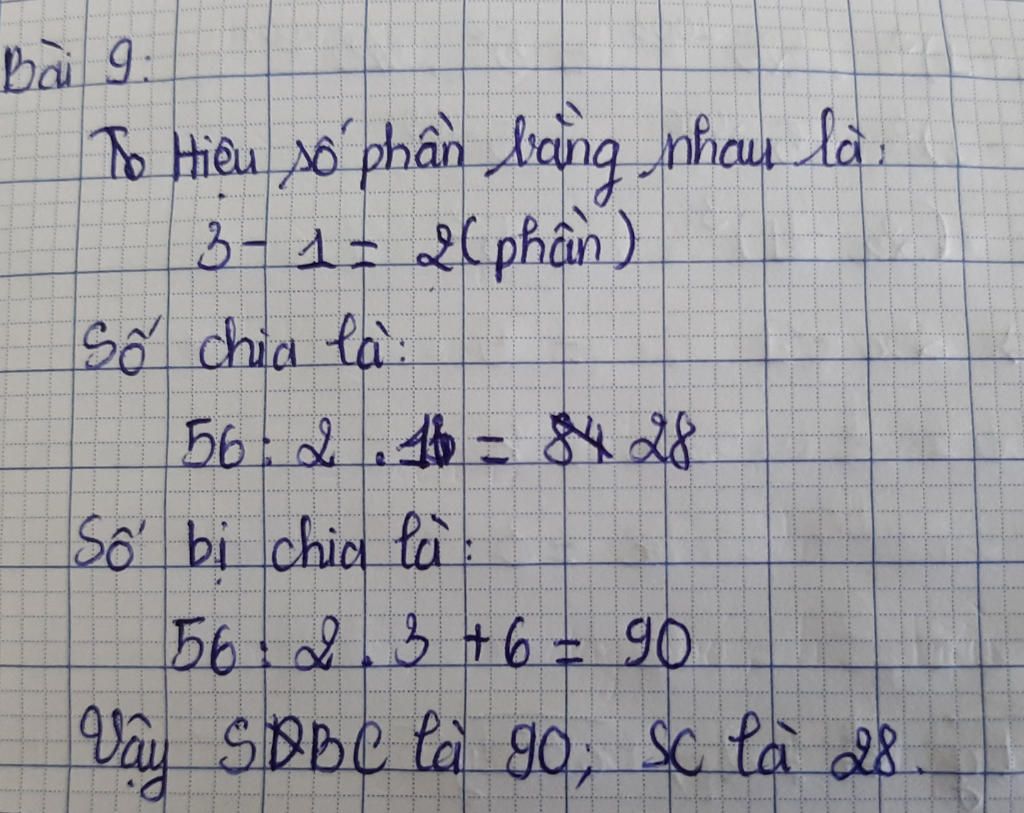 Bài 9:
Hiệu số phần bằng nhau là:
3 - 1 = 2 (phần)
Số chia là:
56 : 2 . 1 = 28
Số bị chia là:
56 : 2 . 3 + 6 = 90
Vậy SBC là 90; SC là 28.